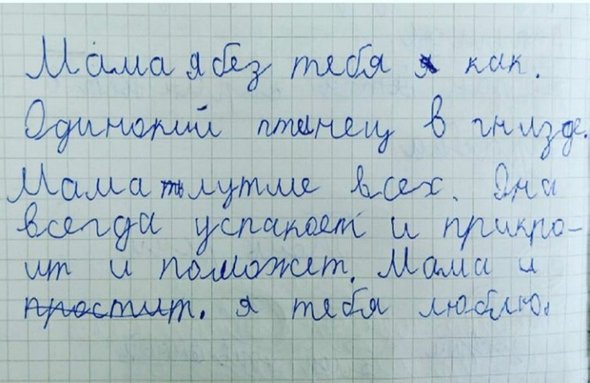 Мама я без тебя как.
Одинокий птенец в гнизде.
Мама ты лутше всех. Она
всегда успакоет и прикро-
ит и поможет. Мама и
простит. я тебя люблю.